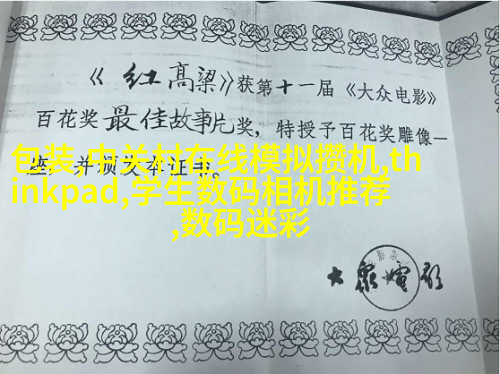 《红高粱》获第十一届《大众电影》
百花奖最佳故事片奖，特授予百花奖雕像一
座，并颁发本证书。
包装,中关村在线模拟攒机,th
inkpad,学生数码相机推荐
,数码迷彩
大众电影